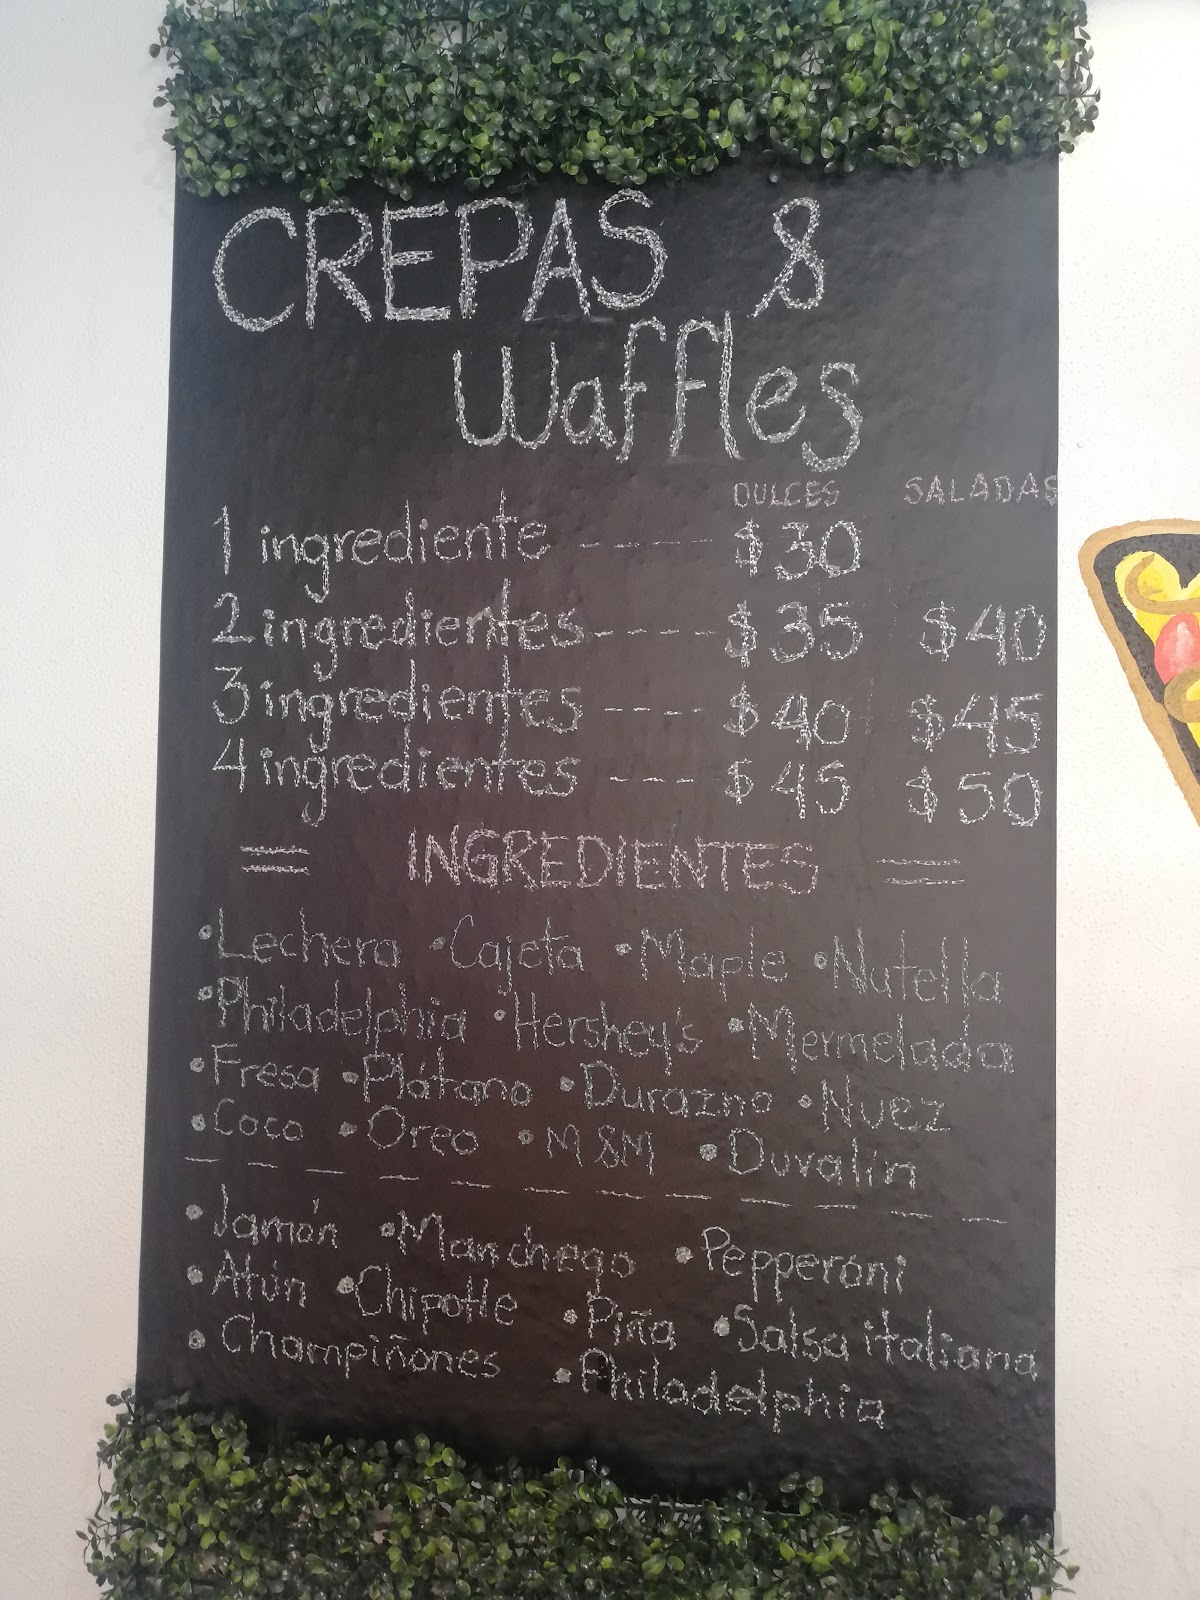 CREPAS &
Waffles
DULCES SALADAS
1 ingrediente ----- $30
2 ingredientes ----- $35 $40
3 ingredientes ---- $40 $45
4 ingredientes ---- $45 $50
= INGREDIENTES =
• Lechera • Cajeta • Maple • Nutella
• Philadelphia • Hershey's • Mermelada
• Fresa • Plátano • Durazno • Nuez
• Coco • Oreo • M&M • Duvalín
• Jamón • Manchego • Pepperoni
• Atún • Chipotle • Piña • Salsa italiana
• Champiñones • Philadelphia